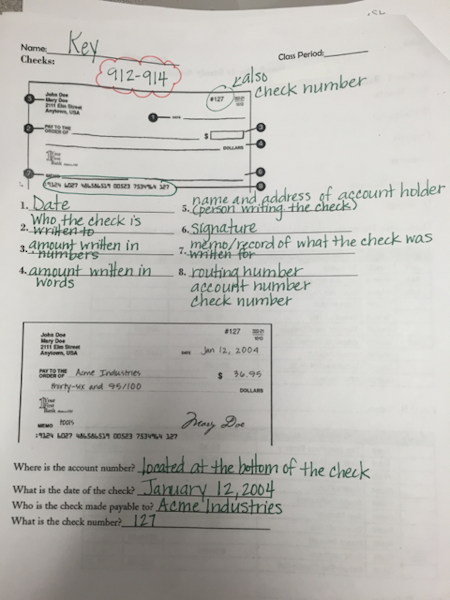 Name: Key
Class Period:
Checks:
912-914
also
check number
John Doe
Mary Doe
2111 Elm Street
Anytown, USA
#127
1
DATE
5
2
PAY TO THE
ORDER OF
$
3
DOLLARS
4
7
MEMO
6
8
1. Date
5. name and address of account holder
(person writing the check)
2. Who the check is
written to
6. signature
3. amount written in
numbers
7. memo/record of what the check was
written for
4. amount written in
words
8. routing number
account number
check number
John Doe
Mary Doe
2111 Elm Street
Anytown, USA
#127
DATE Jan 12, 2004
PAY TO THE
ORDER OF Acme Industries $ 36.95
thirty-six and 95/100 DOLLARS
MEMO tools Mary Doe
Where is the account number? located at the bottom of the check
What is the date of the check? January 12, 2004
Who is the check made payable to? Acme Industries
What is the check number? 127